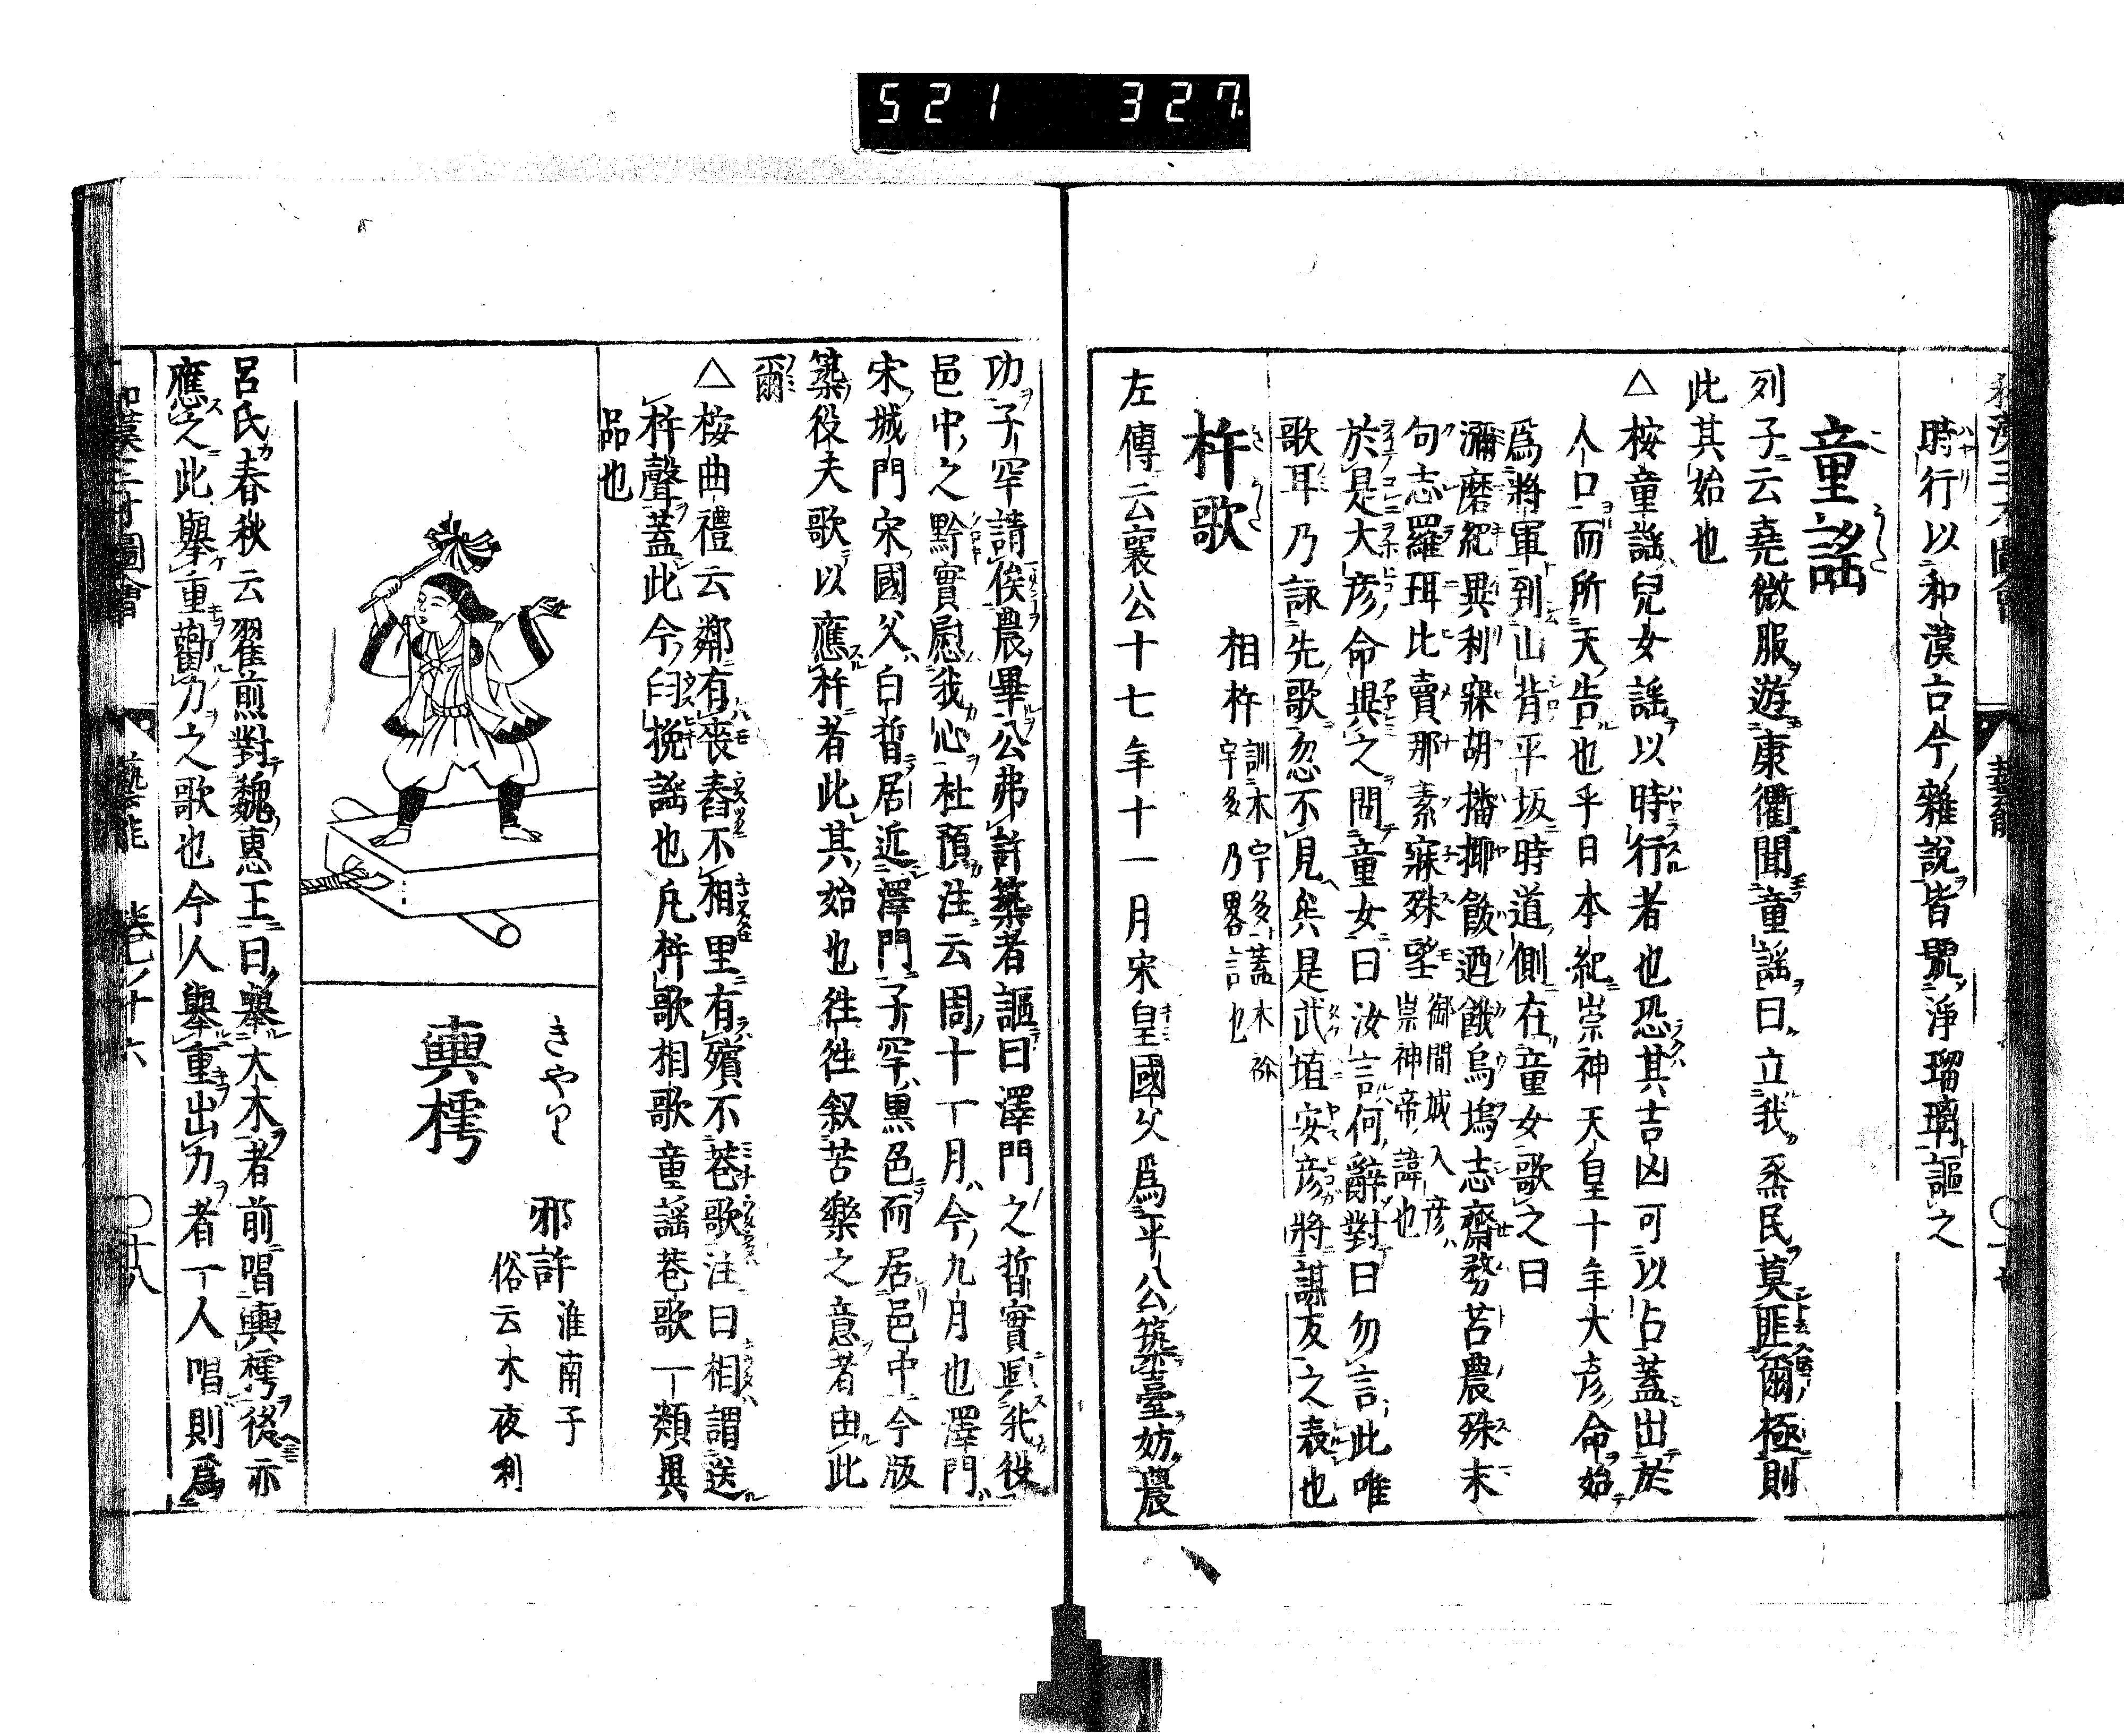 521 327
時行以和漢古今雜說皆冠淨瑠璃謳之
童謠
列子云堯微服遊康衢聞童謠曰立我烝民莫匪爾極則
此其始也
△按童謠兒女謠以時行者也恐其吉凶可以占蓋出於
人口而所天告也乎日本紀崇神天皇十年大彥命始
爲將軍到山背平坂時道側在童女歌之曰
瀰磨紀異利寐胡播揶飫迺餓烏塢志齋務苫農殊末
句志羅珥比賣那素寐殊望 御間城入彥ハ崇神帝諱也
於是大彥命與之問童女曰汝言何辭對曰勿言此唯
歌耳乃詠先歌忽不見矣是武埴安彥將謀反之表也
杵歌 相杵 訓木宇多蓋木裕宇多乃畧言也
左傳云襄公十七年十一月宋皇國父爲平公築臺妨農
功子罕請俟農畢公弗許築者謳曰澤門之晳實興我役
邑中之黔實慰我心杜預注云周十一月今九月也澤門
宋城門宋國父白晳居近澤門子罕黒色而居邑中今版
築役夫歌以應杵者此其始也往往叙苦樂之意者由此
爾
△按曲禮云鄰有喪舂不相里有殯不巷歌注曰相謂送
杵聲蓋此今臼挽謠也凡杵歌相歌童謠巷歌一類異
品也
きやり
輿樗
邪許 淮南子
俗云木夜利
呂氏春秋云翟煎對魏惠王曰舉大木者前唱輿樗後亦
應之此舉重勸力之歌也今人舉重出力者一人唱則爲
和漢三才圖會 藝能 卷ノ十六 〇十八